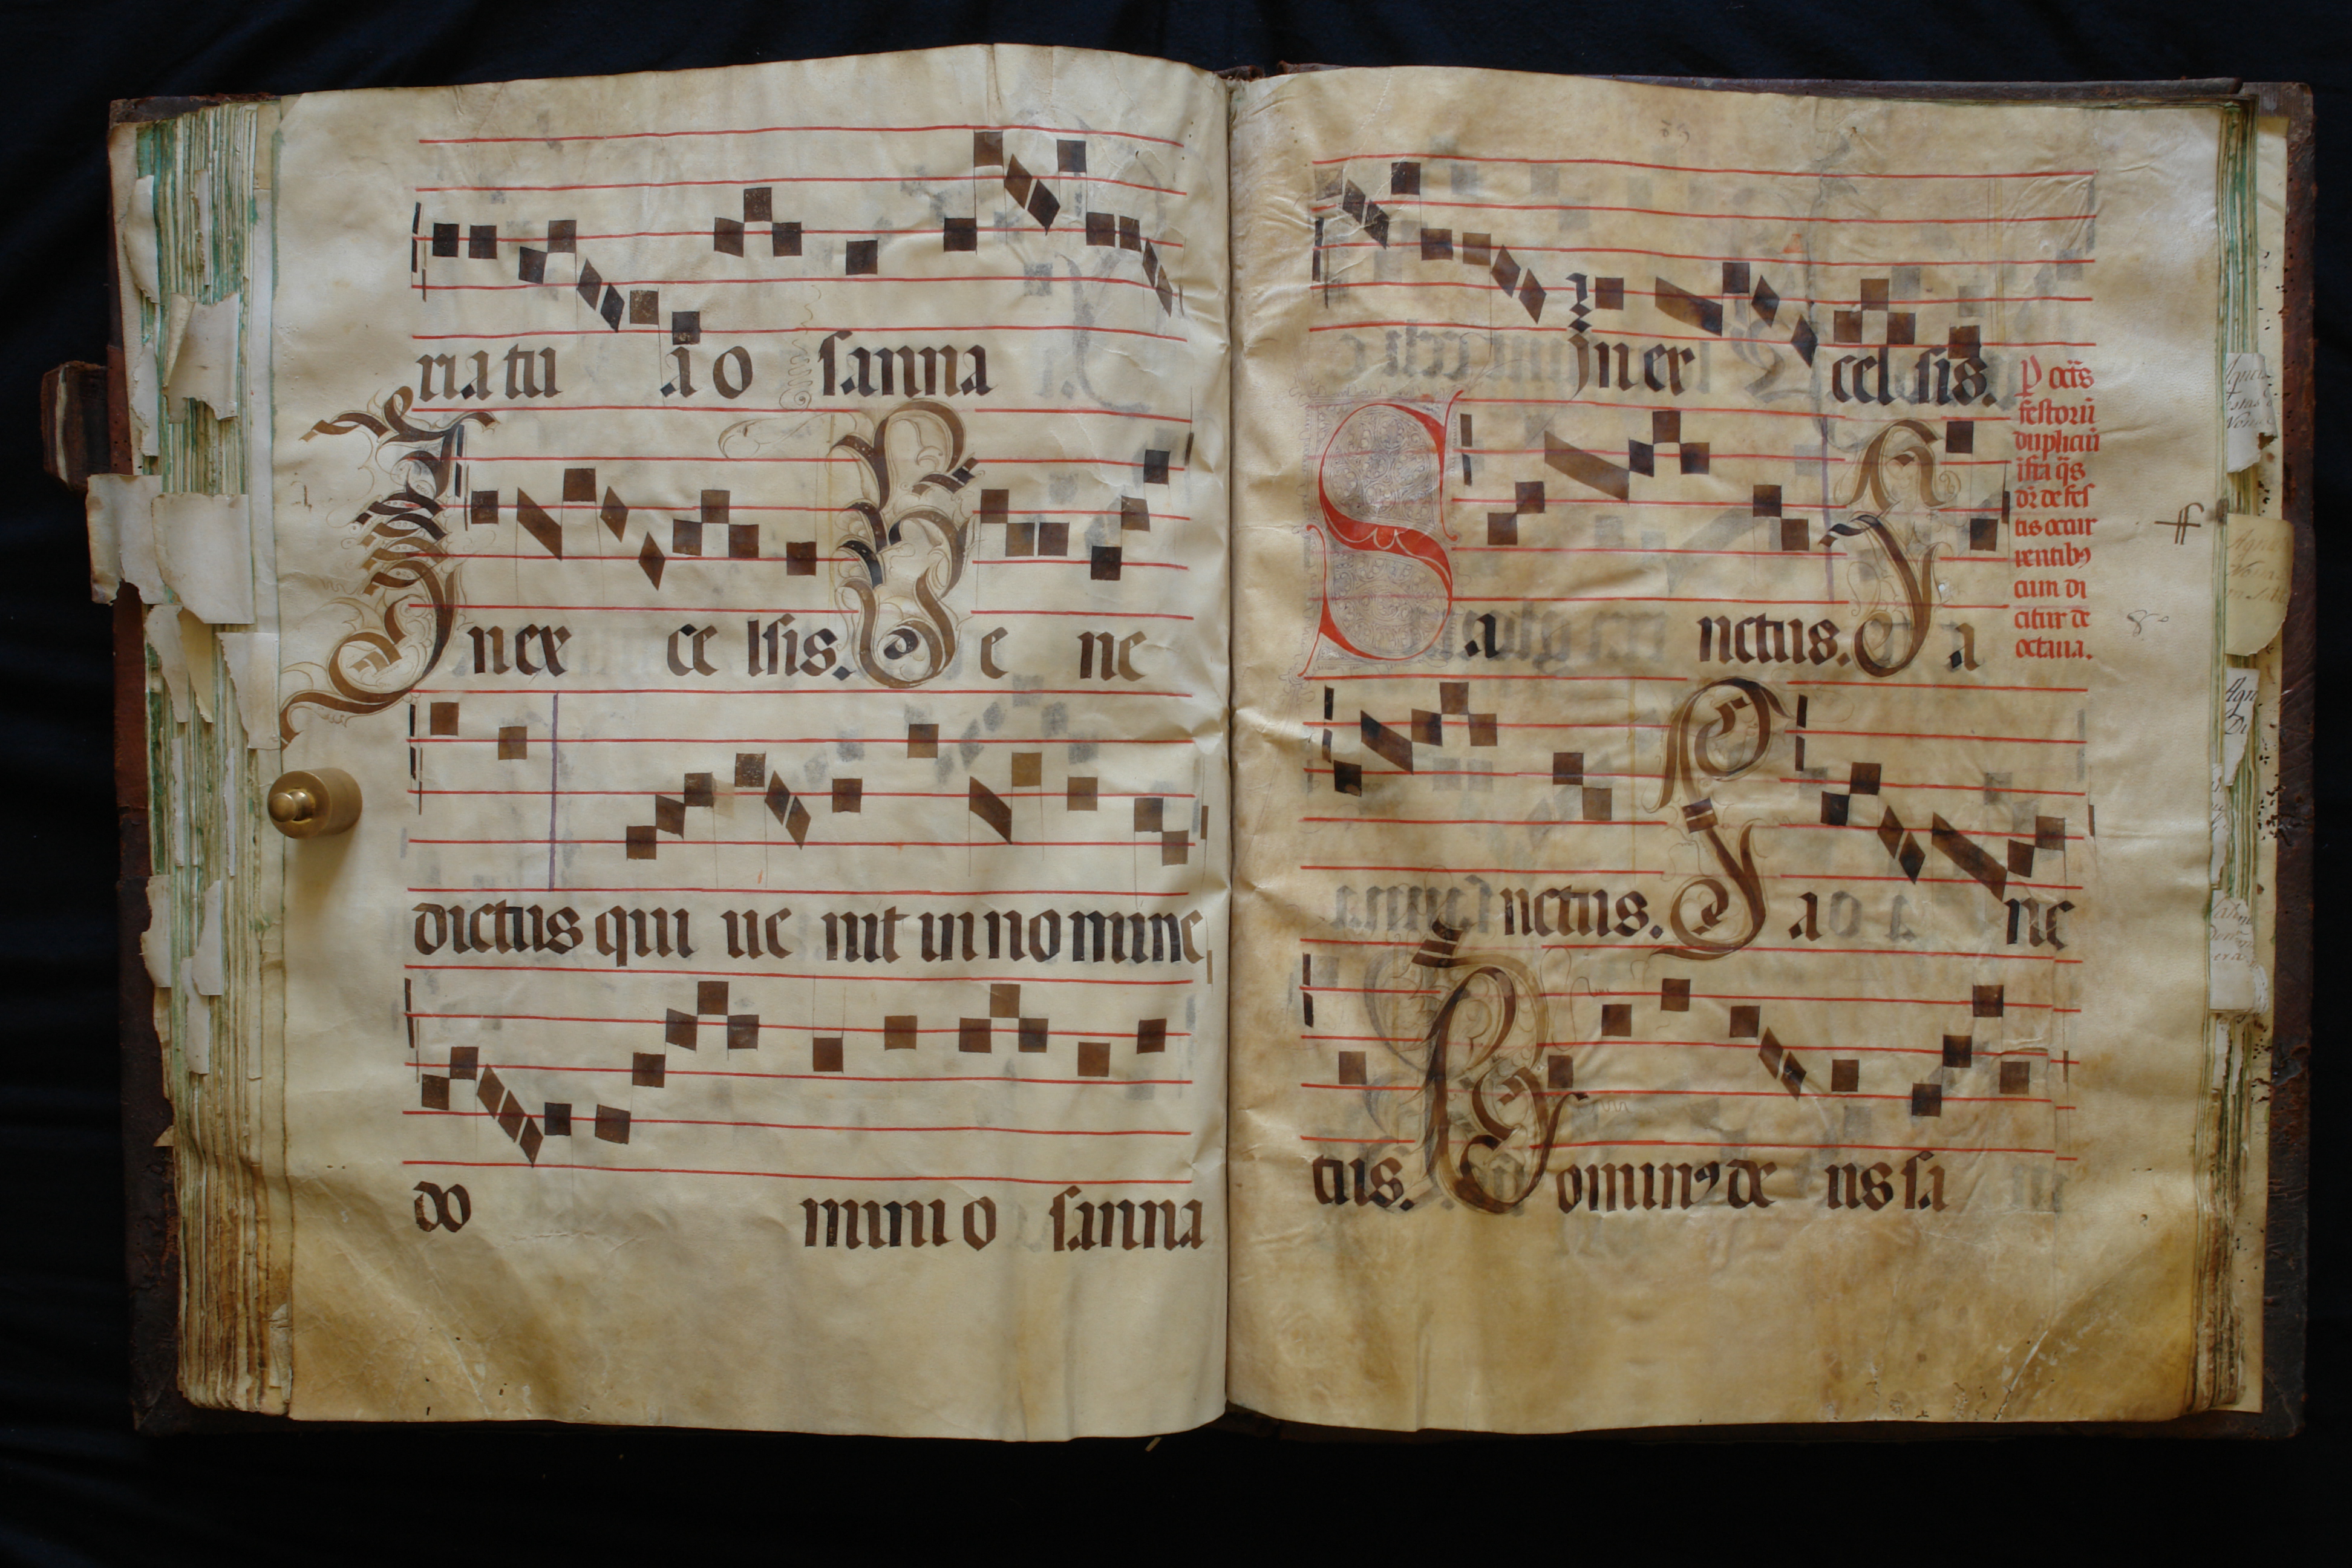 ria tu a o sanna
In ex ce lsis. Be ne
dictus qui ue nit in no mine
do mini o sanna
in ex cel sis.
P oc̃ts
festorũ
dupliciũ
ista q̃s
dr̃ de fes
tis occur
rentibꝰ
cum di
citur de
octaua.
Sa nctus. Sa
nctus. Sa nc
tus. Dominꝰ de us sa